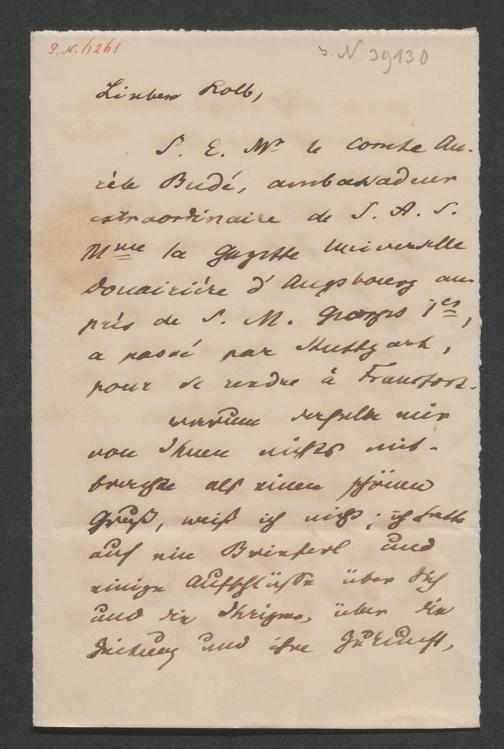 J. N. 39130
Lieber Kolb,
S. E. Mr le comte Au-
rèle Budé, ambassadeur
extraordinaire de S. A. S.
Mme la Gazette universelle
Douairière d'Augsbourg au-
près de S. M. Georges 1er,
a passé par Stuttgart,
pour se rendre à Francfort.
warum derselbe mir
von Ihnen nichts mit-
brachte als einen schönen
Gruß, weiß ich nicht; ich hatte
auf ein Brieferl und
einige Aufschlüsse über Sich
und die Ihrigen, über die
Zeitung und ihre Zukunft,